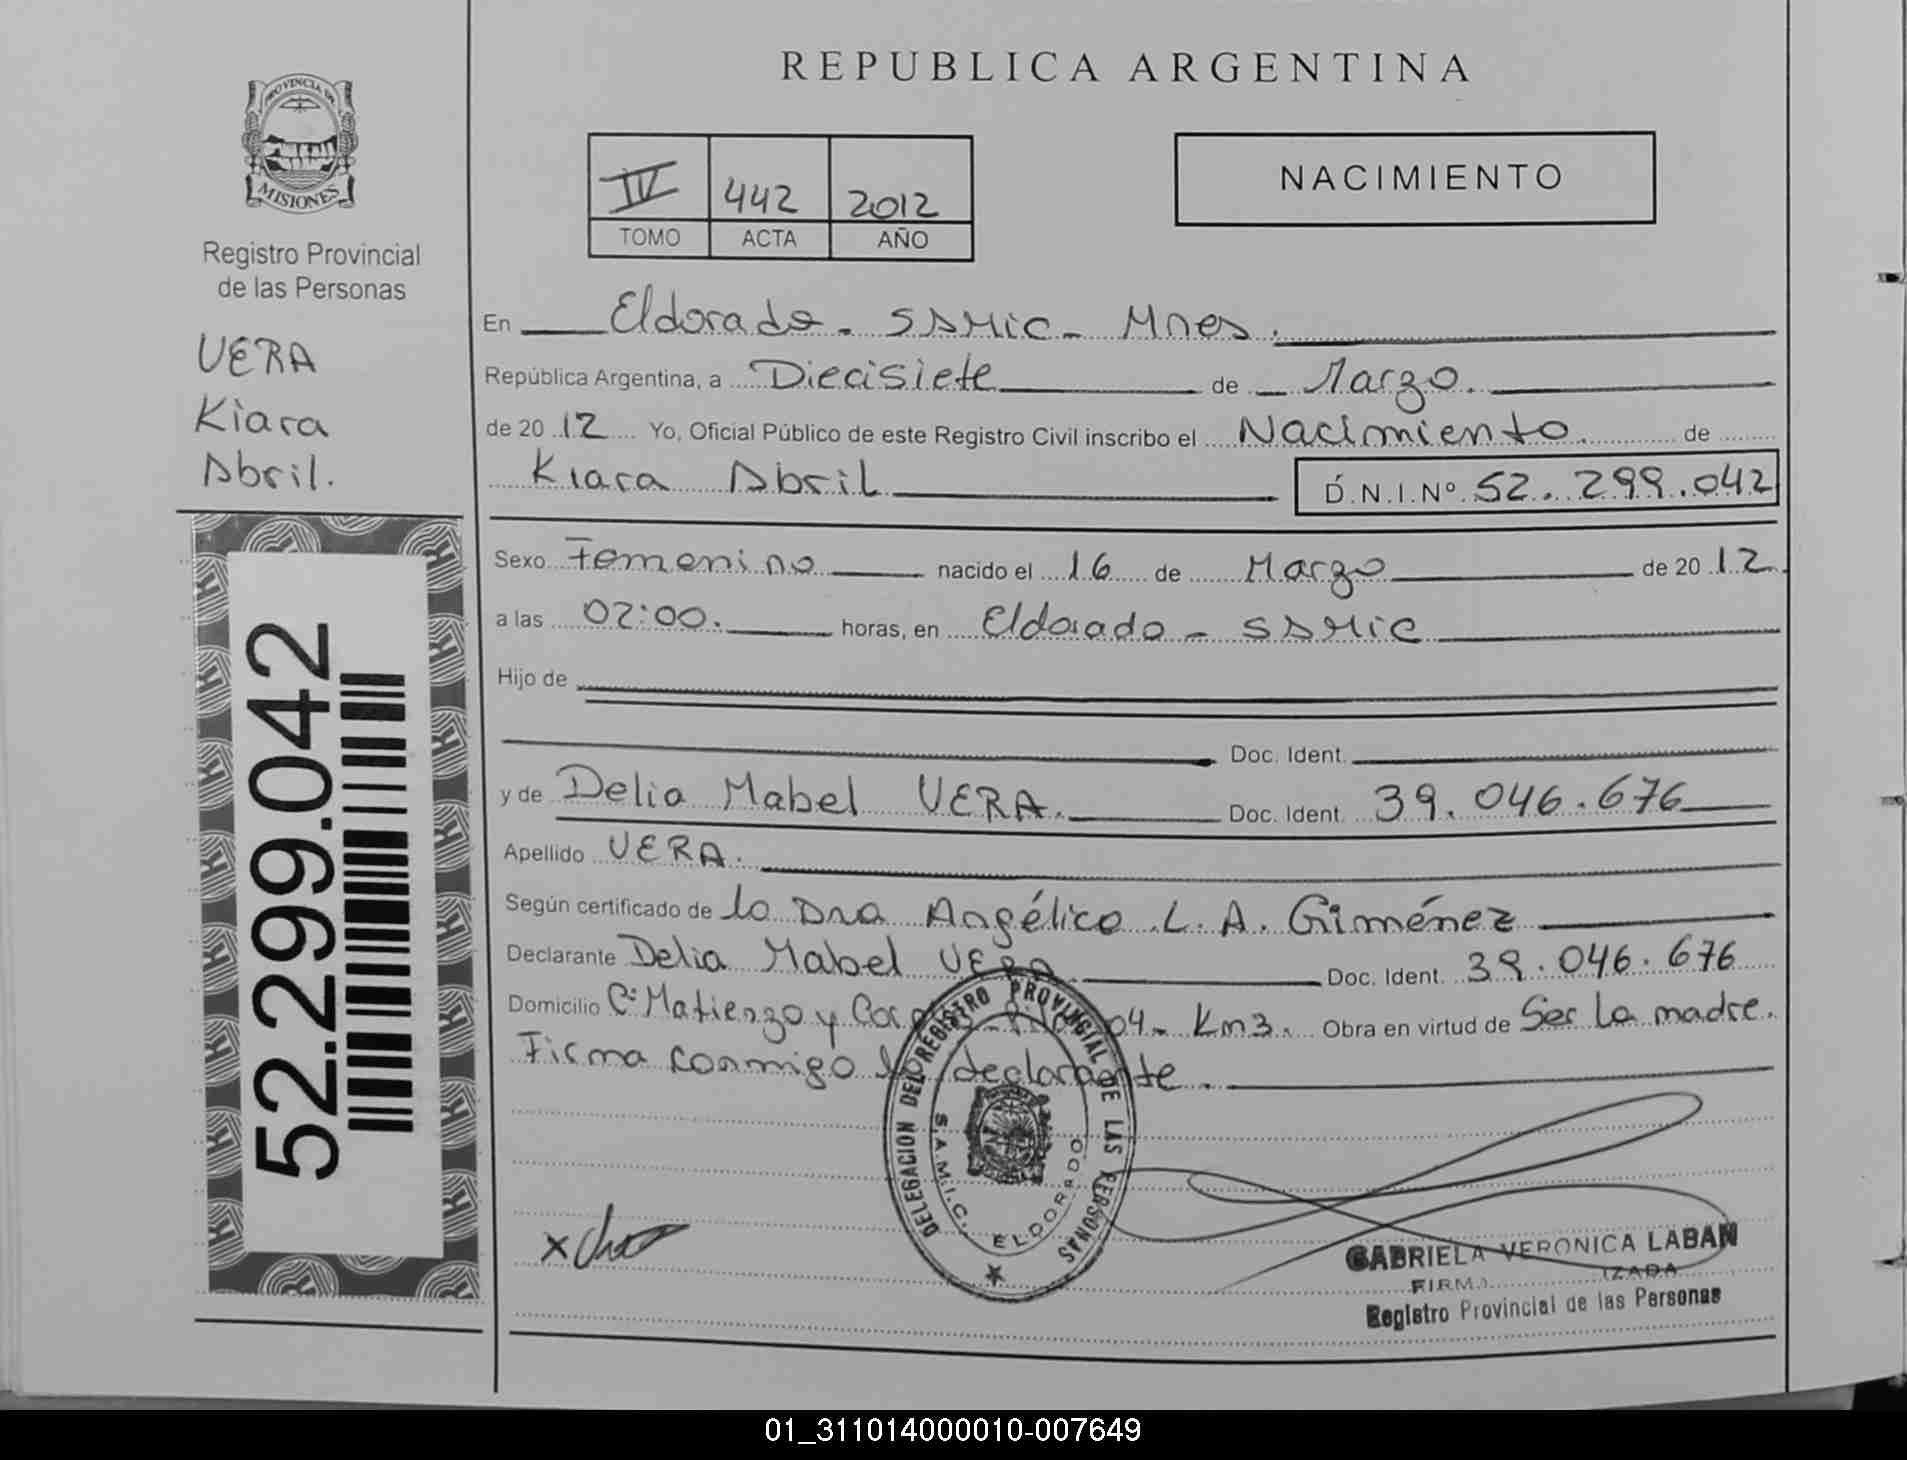 REPUBLICA ARGENTINA
PROVINCIA DE
MISIONES
Registro Provincial
de las Personas
VERA
Kiara
Abril.
52.299.042
IV 442 2012
TOMO ACTA AÑO
NACIMIENTO
En Eldorado - SAMic - Mnes.
República Argentina, a Diecisiete de Marzo.
de 20 12 Yo, Oficial Público de este Registro Civil inscribo el Nacimiento de
Kiara Abril D.N.I.Nº 52.299.042
Sexo Femenino nacido el 16 de Marzo de 20 12
a las 02:00. horas, en Eldorado - SAMic
Hijo de
Doc. Ident.
y de Delia Mabel VERA. Doc. Ident. 39.046.676
Apellido VERA.
Según certificado de la Dra Angélica L. A. Giménez
Declarante Delia Mabel VERA. Doc. Ident. 39.046.676
Domicilio Cº Matienzo y 04 - Km3. Obra en virtud de Ser la madre.
Firma conmigo la declarante.
DELEGACION DEL REGISTRO PROVINCIAL DE LAS PERSONAS
S.A.M.I.C. ELDORADO
x
GABRIELA VERONICA LABAN
FIRMA IZADA
Registro Provincial de las Personas
01_311014000010-007649